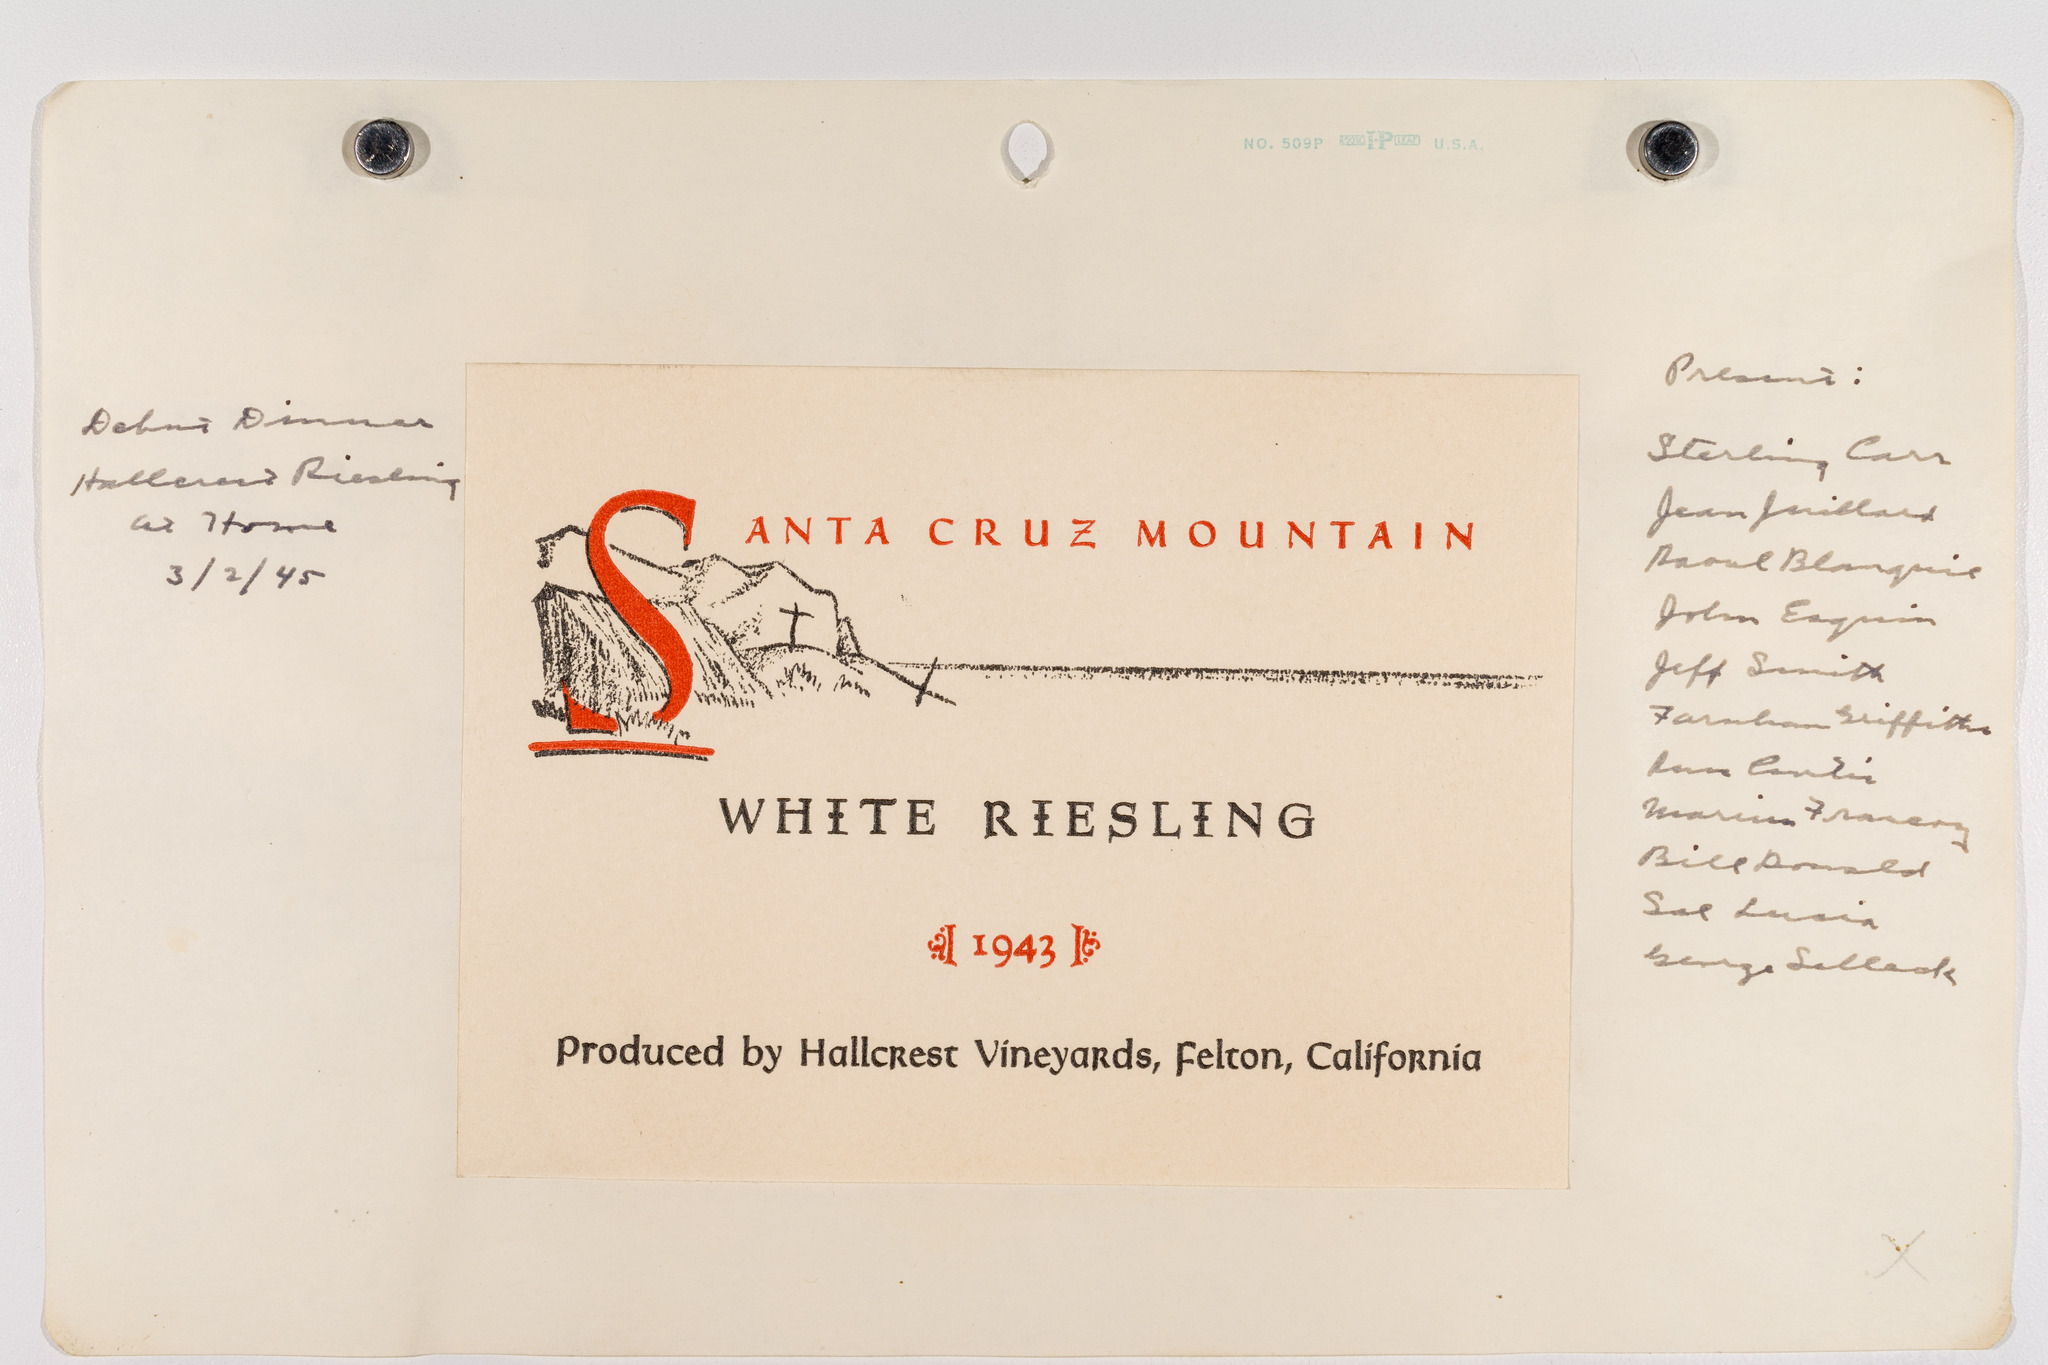 NO. 509P HP U.S.A.
Debut Dinner
Hallcrest Riesling
at Home
3/2/45
SANTA CRUZ MOUNTAIN
WHITE RIESLING
1943
Produced by Hallcrest Vineyards, Felton, California
Present:
Sterling Carr
Jean Juillard
Raoul Blanquie
John Esquin
Jeff Smith
Farnham Griffiths
Bill Donald
George Selleck
X